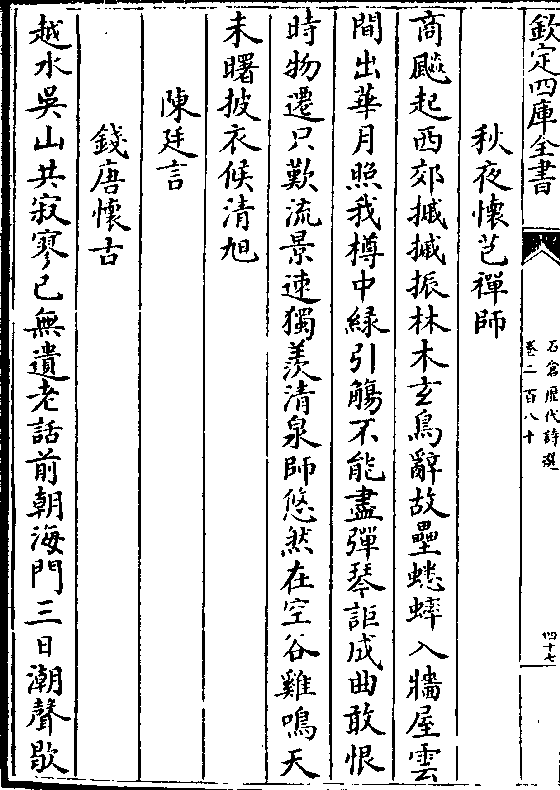 欽定四庫全書
石倉歷代詩選
卷二百八十
四十七
秋夜懷芑禪師
商飈起西郊摵摵振林木玄鳥辭故壘蟋蟀入牆屋雲
間出華月照我樽中緑引觴不能盡彈琴詎成曲敢恨
時物遷只歎流景速獨羨清泉師悠然在空谷雞鳴天
未曙披衣候清旭
陳廷言
錢唐懷古
越水吳山共寂寥已無遺老話前朝海門三日潮聲歇